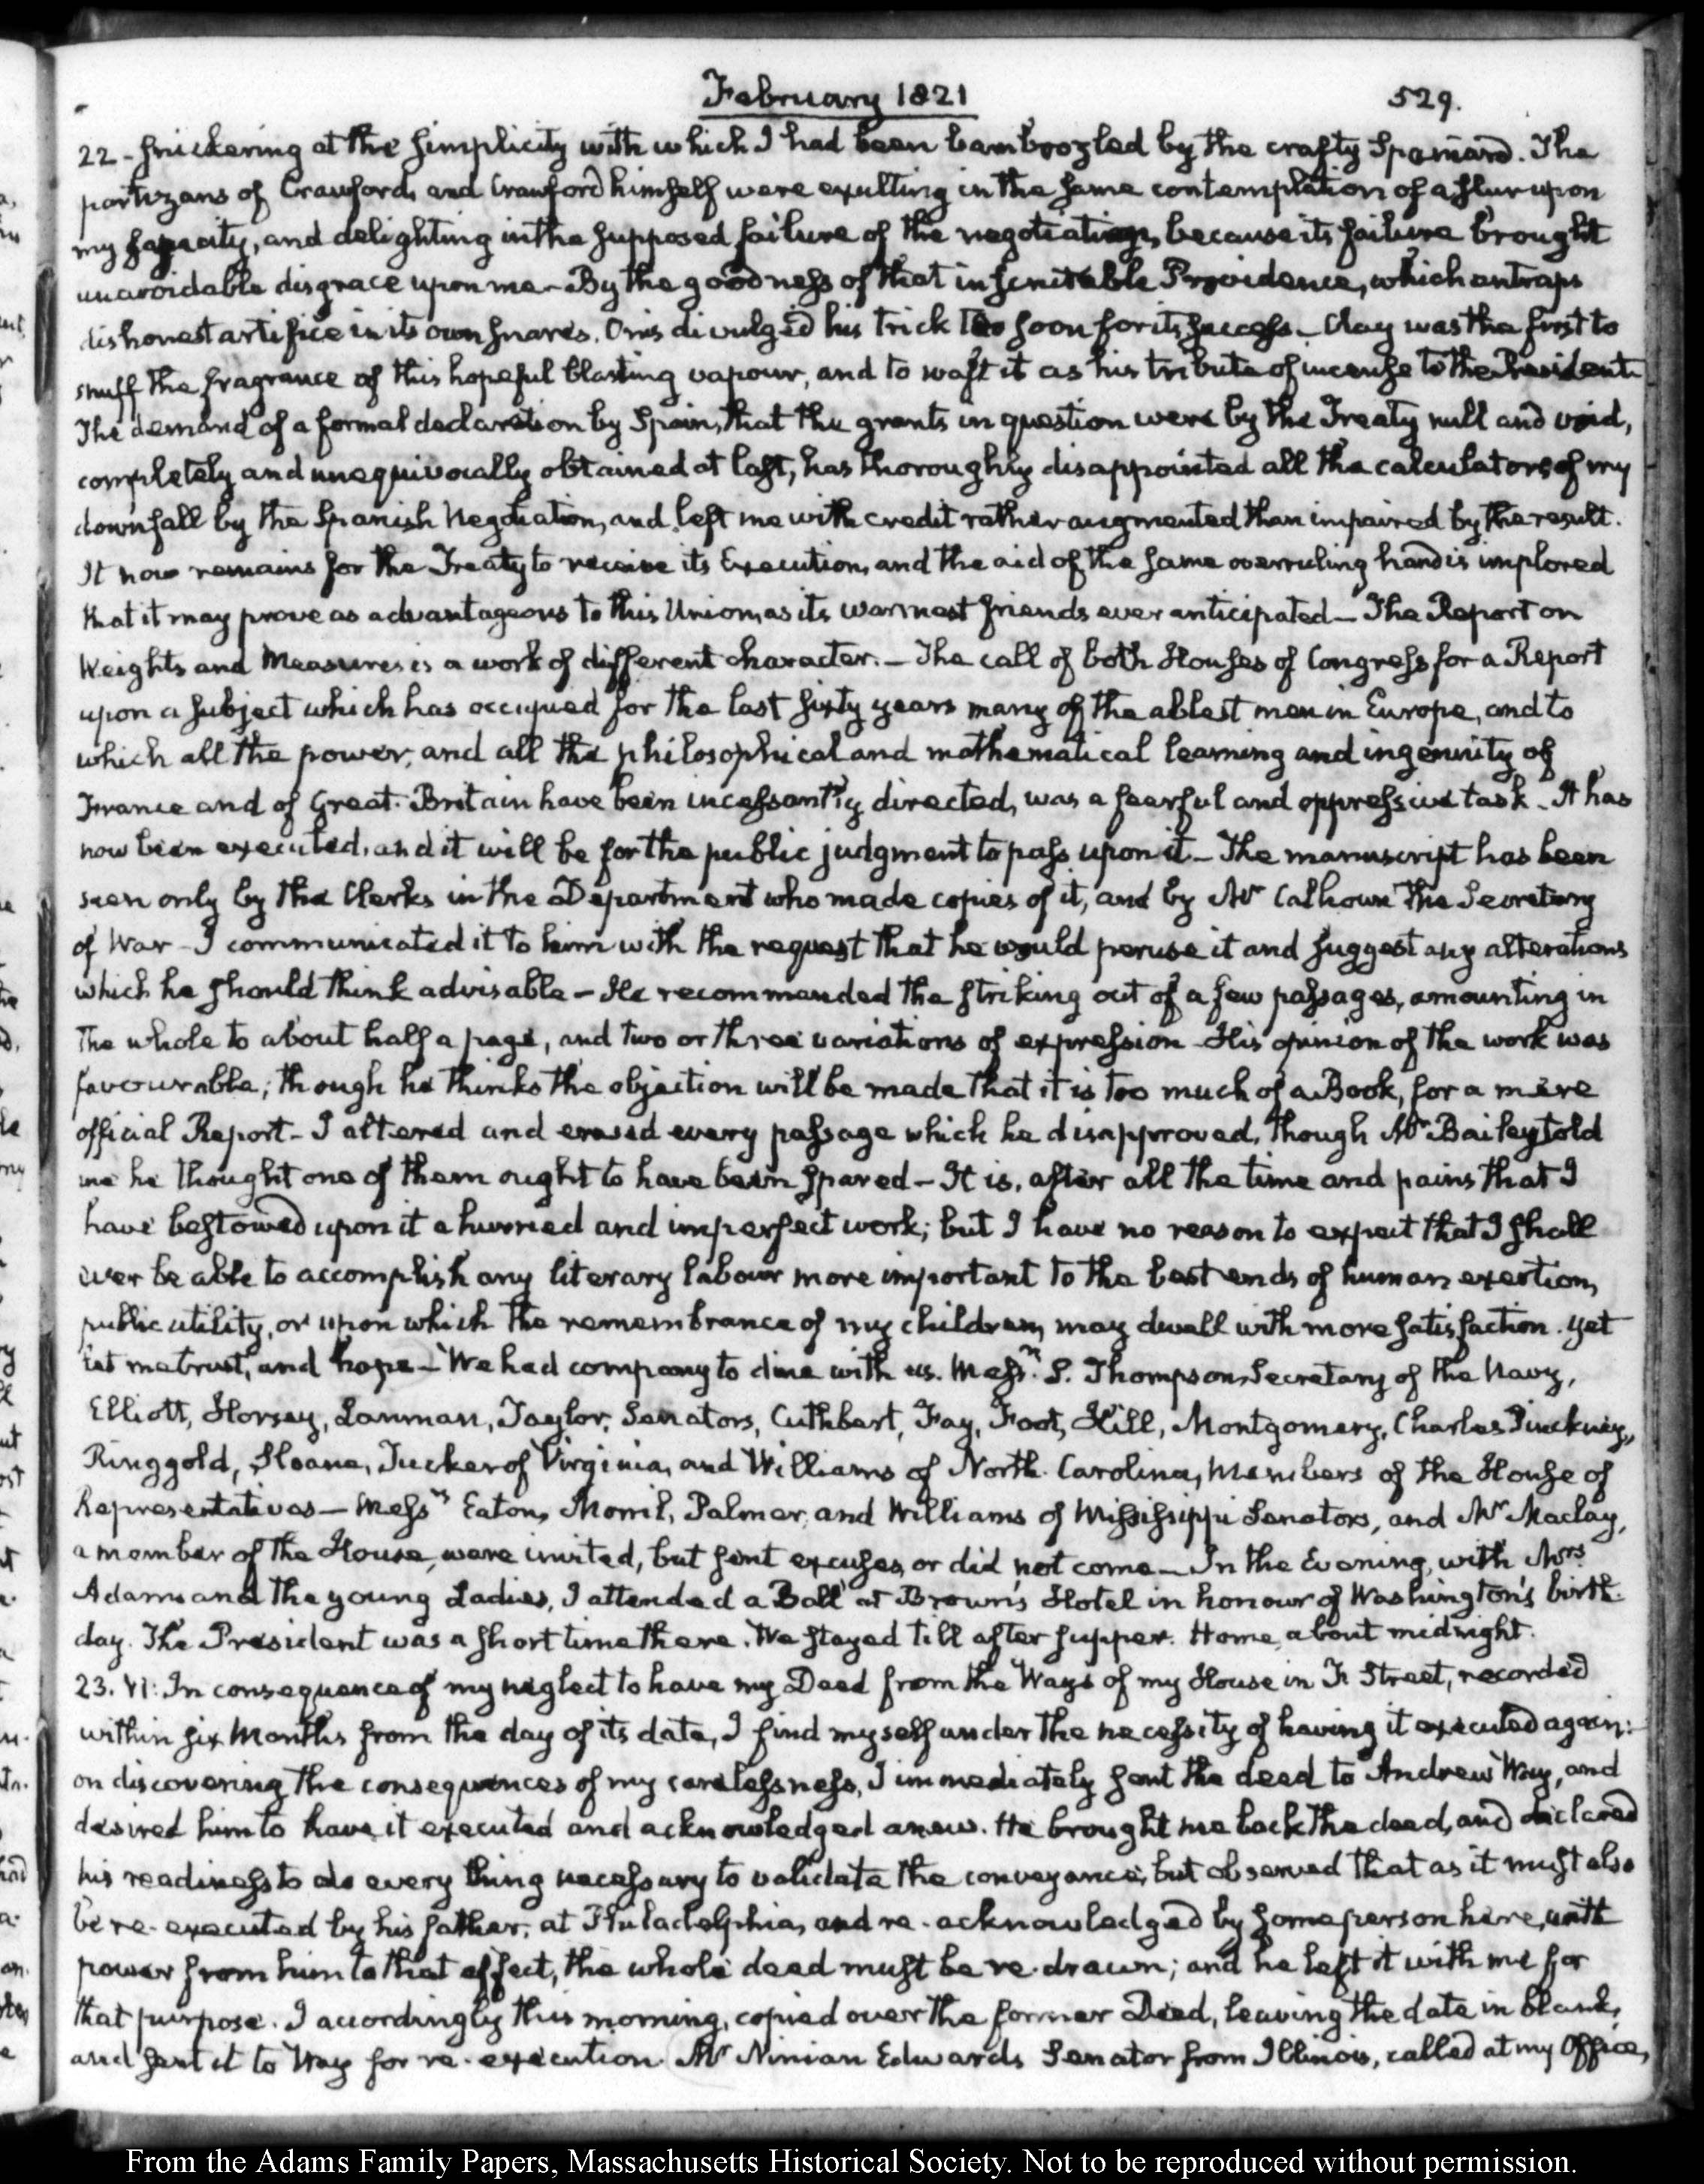 February 1821
529.
22 - snickering at the simplicity with which I had been bamboozled by the crafty Spaniard. The
partizans of Crawford, and Crawford himself were exulting in the same contemplation of a slur upon
my sagacity, and delighting in the supposed failure of the negotiation, because its failure brought
unavoidable disgrace upon me — By the goodness of that inscrutable Providence, which entraps
dishonest artifice in its own snares, Onis divulged his trick too soon for its success — Clay was the first to
snuff the fragrance of this hopeful blasting vapour, and to waft it as his tribute of incense to the President.
The demand of a formal declaration by Spain, that the grants in question were by the Treaty null and void,
completely and unequivocally obtained at last, has thoroughly disappointed all the calculators of my
downfall by the Spanish Negotiation, and left me with credit rather augmented than impaired by the result.
It now remains for the Treaty to receive its Execution, and the aid of the same overruling hand is implored
that it may prove as advantageous to this Union, as its warmest friends ever anticipated — The Report on
Weights and Measures is a work of different character. — The call of both Houses of Congress for a Report
upon a subject which has occupied for the last sixty years many of the ablest men in Europe, and to
which all the power, and all the philosophical and mathematical learning and ingenuity of
France and of Great-Britain have been incessantly directed, was a fearful and oppressive task — It has
now been executed, and it will be for the public judgment to pass upon it — The manuscript has been
seen only by the Clerks in the Department who made copies of it, and by Mr Calhoun the Secretary
of War — I communicated it to him with the request that he would peruse it and suggest any alterations
which he should think advisable — He recommended the striking out of a few passages, amounting in
the whole to about half a page, and two or three variations of expression — His opinion of the work was
favourable; though he thinks the objection will be made that it is too much of a Book, for a mere
official Report — I altered and erased every passage which he disapproved, though Mr Bailey told
me he thought one of them ought to have been spared — It is, after all the time and pains that I
have bestowed upon it a hurried and imperfect work; but I have no reason to expect that I shall
ever be able to accomplish any literary labour more important to the best ends of human exertion,
public utility, or upon which the remembrance of my children, may dwell with more satisfaction. Yet
let me trust, and hope — We had company to dine with us. Messrs. S. Thompson, Secretary of the Navy,
Elliott, Horsey, Lanman, Taylor, Senators, Cuthbert, Fay, Foot, Hill, Montgomery, Charles Pinckney,
Ringgold, Sloane, Tucker of Virginia, and Williams of North-Carolina, Members of the House of
Representatives — Messrs Eaton, Morril, Palmer, and Williams of Mississippi Senators, and Mr Maclay,
a member of the House, were invited, but sent excuses, or did not come — In the Evening, with Mrs
Adams and the young Ladies, I attended a Ball at Brown's Hotel in honour of Washington's birth-
day. The President was a short time there. We stayed till after supper. Home, about midnight.
23. VI: In consequence of my neglect to have my Deed from the Ways of my House in F Street, recorded
within six Months from the day of its date, I find myself under the necessity of having it executed again:
on discovering the consequences of my carelessness, I immediately sent the deed to Andrew Way, and
desired him to have it executed and acknowledged anew. He brought me back the deed, and declared
his readiness to do every thing necessary to validate the conveyance; but observed that as it must also
be re-executed by his father, at Philadelphia, and re-acknowledged by some person here, with
power from him to that effect, the whole deed must be re-drawn; and he left it with me for
that purpose. I accordingly this morning, copied over the former Deed, leaving the date in blank,
and sent it to Way for re-execution. Mr Ninian Edwards Senator from Illinois, called at my Office,
From the Adams Family Papers, Massachusetts Historical Society. Not to be reproduced without permission.